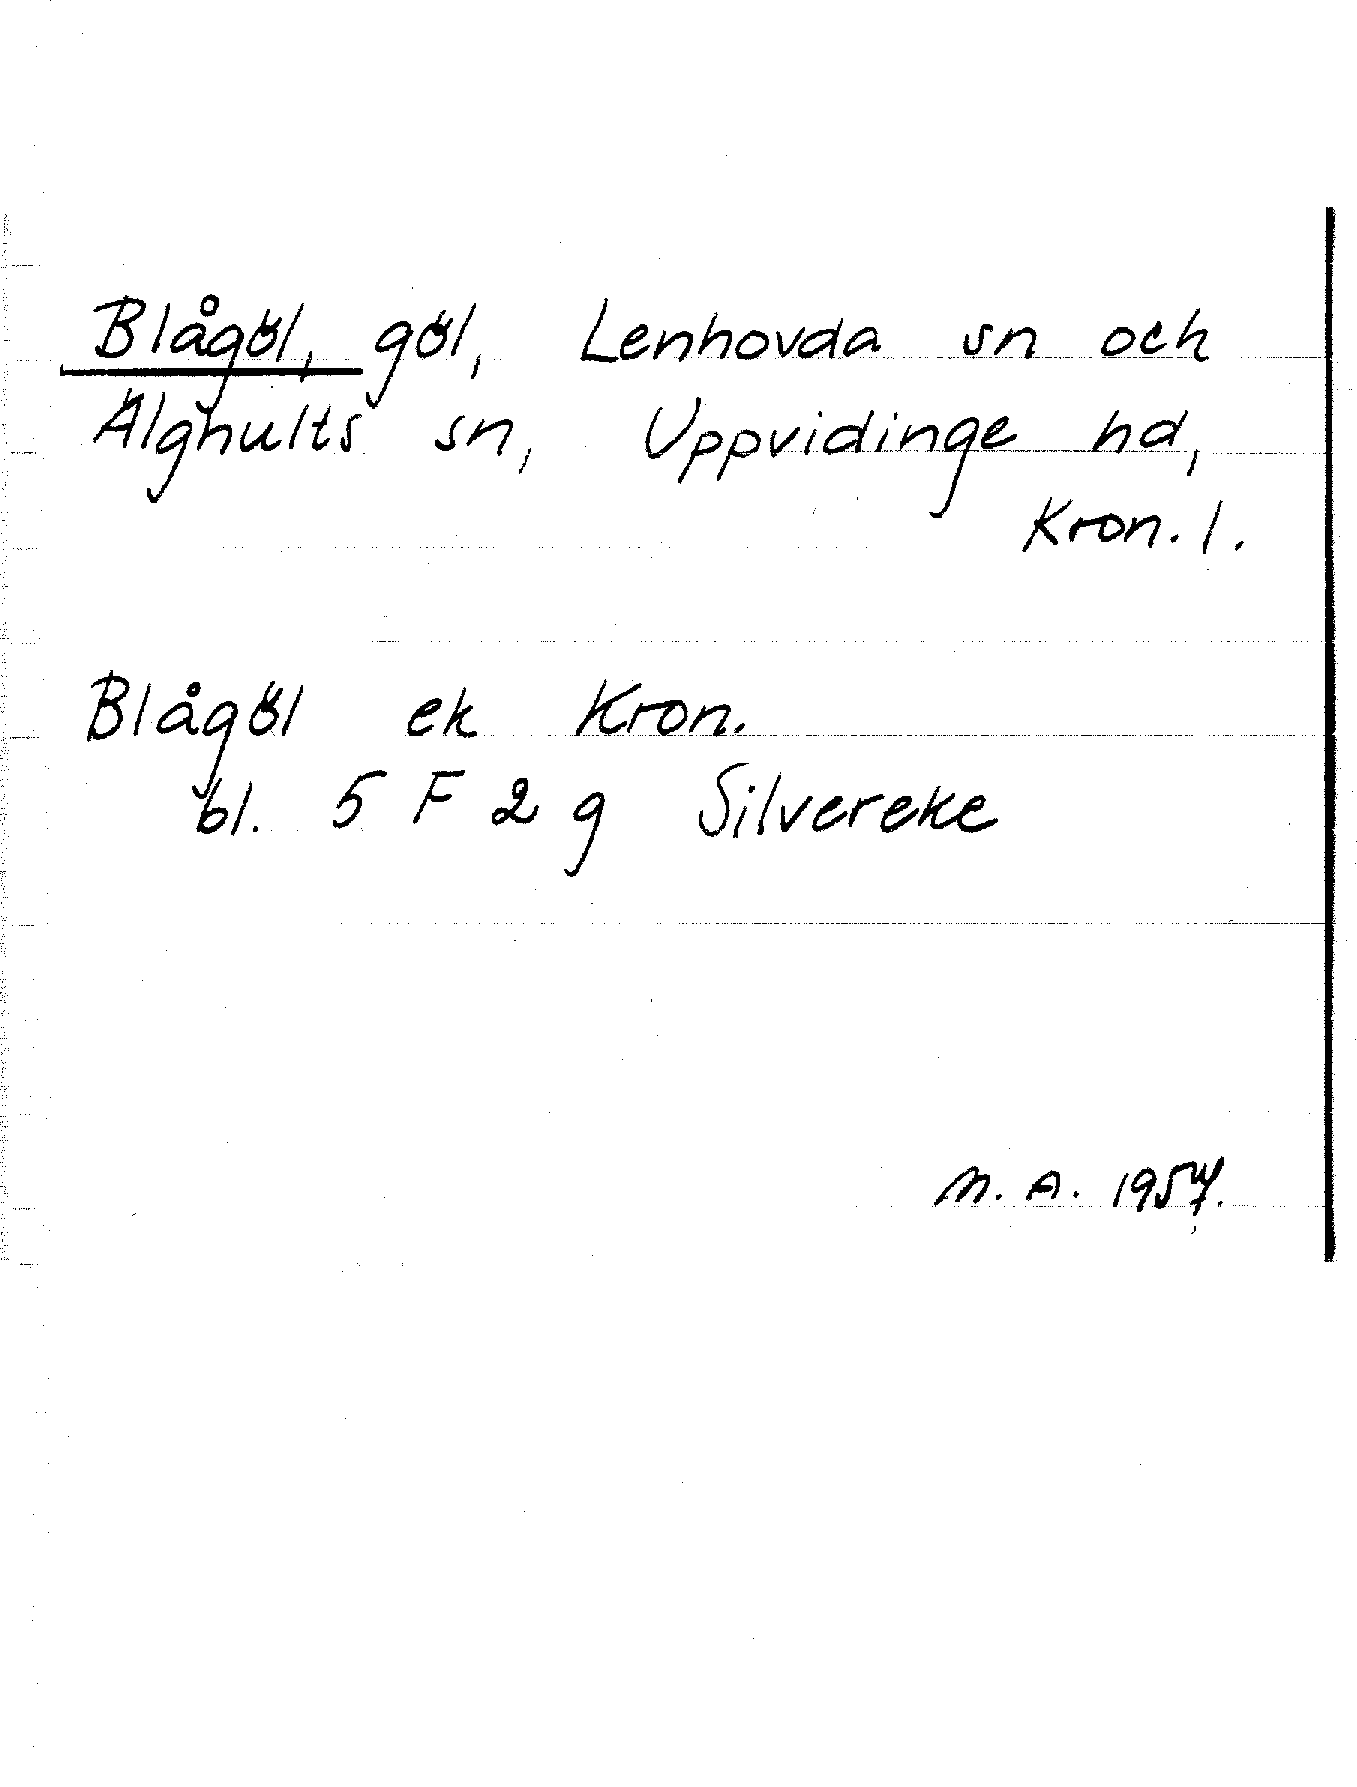 Blågöl, göl, Lenhovda sn och
Älghults sn, Uppvidinge hd,
Kron. l.
Blågöl ek Kron.
bl. 5 F 2 g Silvereke
M. A. 1957.